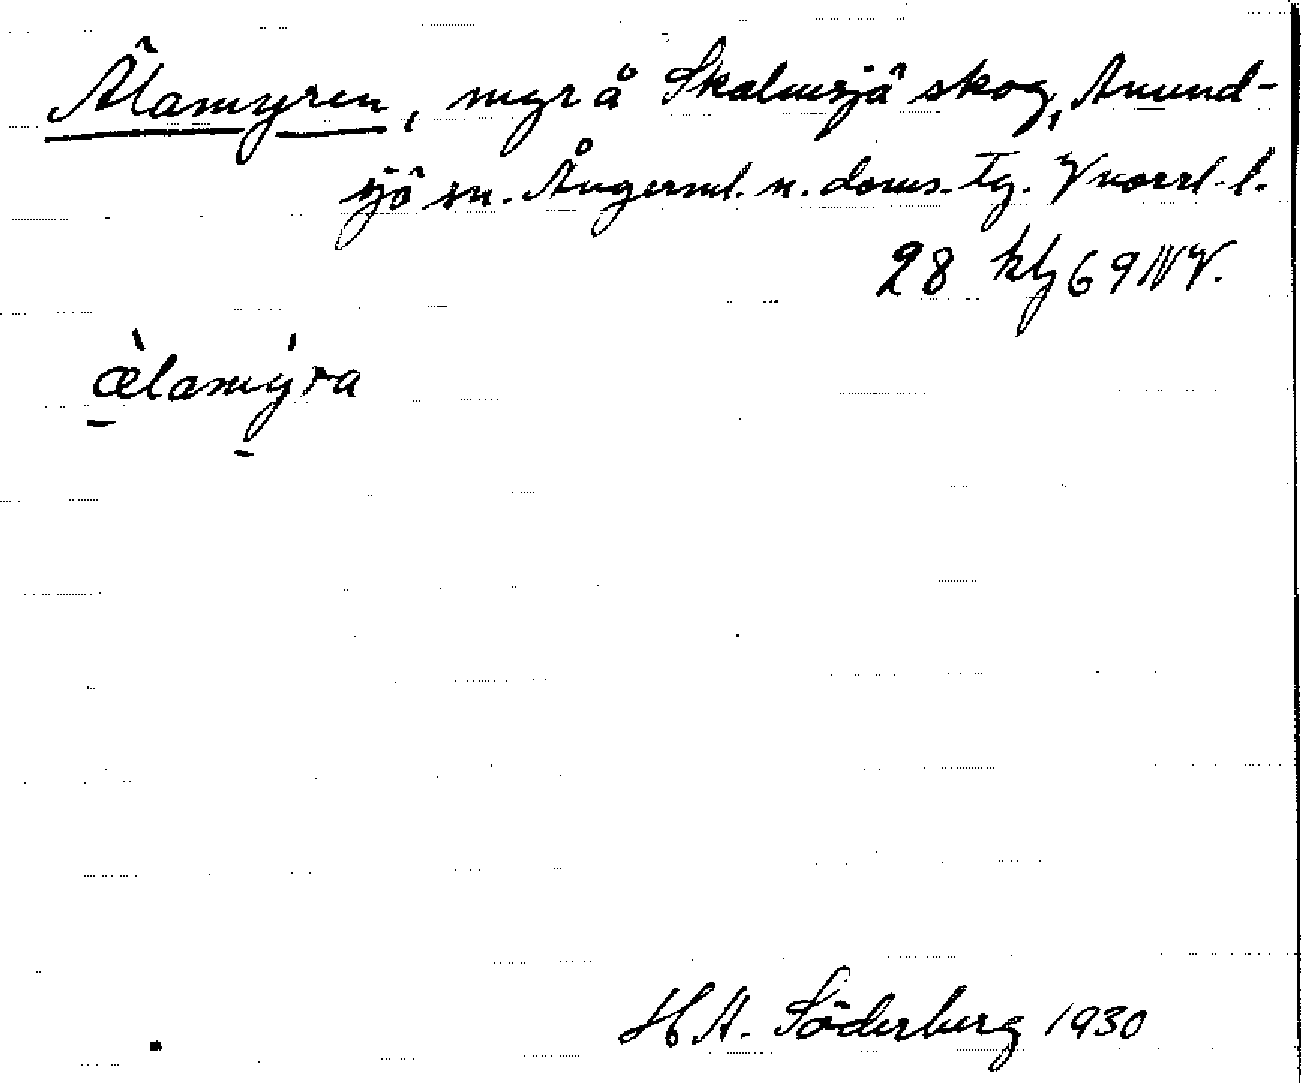 Älamyren, myr å Skalmsjö skog, Anund-
sjö sn. Ångerml. n. doms. Tg. Vnorrl. l.
28 klj 69 NV.
æ̀lamýra
H A. Söderberg 1930